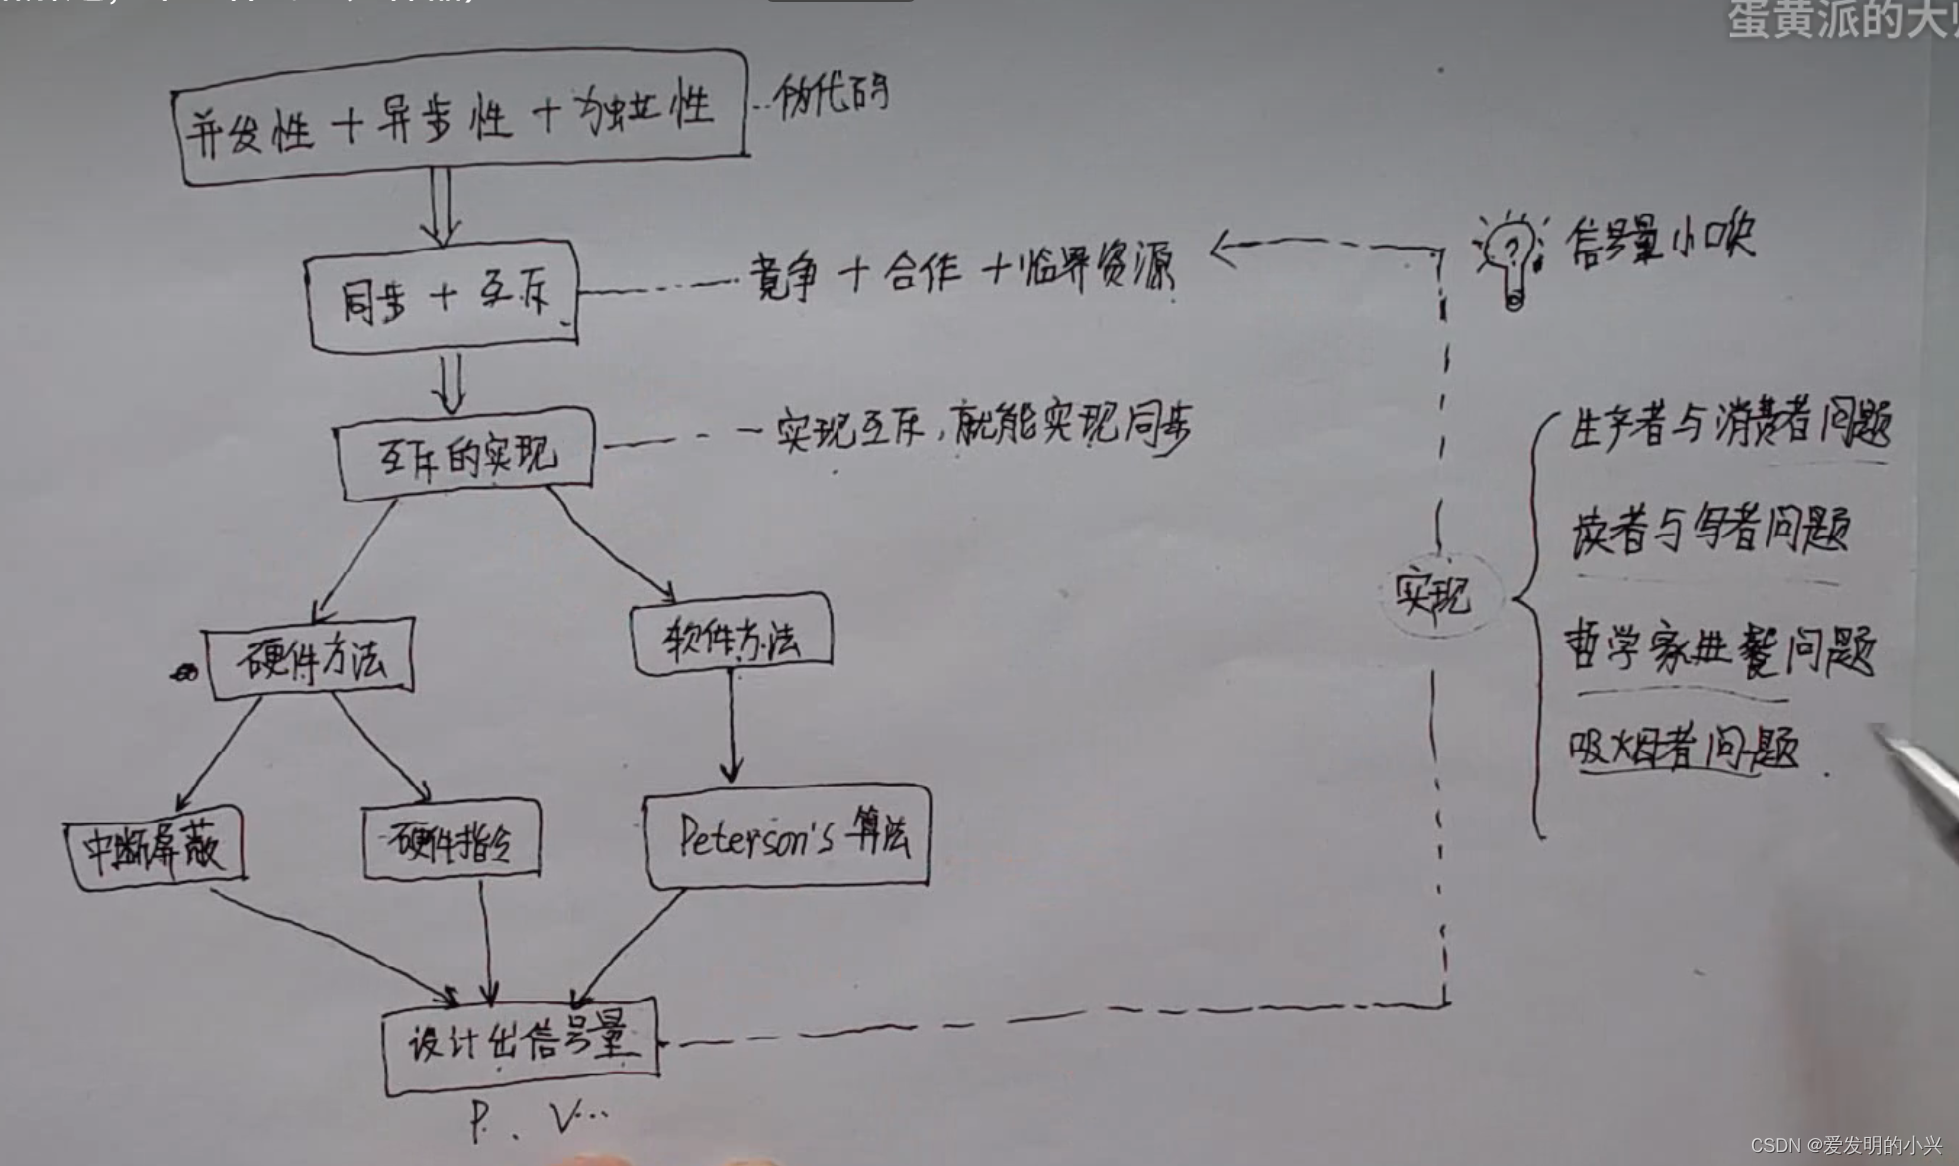 蛋黄派的大
并发性 + 异步性 + 独立性
伪代码
信号量小吹
同步 + 互斥
竞争 + 合作 + 临界资源
互斥的实现
实现互斥,就能实现同步
生产者与消费者问题
读者与写者问题
实现
硬件方法
软件方法
哲学家进餐问题
吸烟者问题
中断屏蔽
硬件指令
Peterson's 算法
设计出信号量
P、V...
CSDN @爱发明的小兴